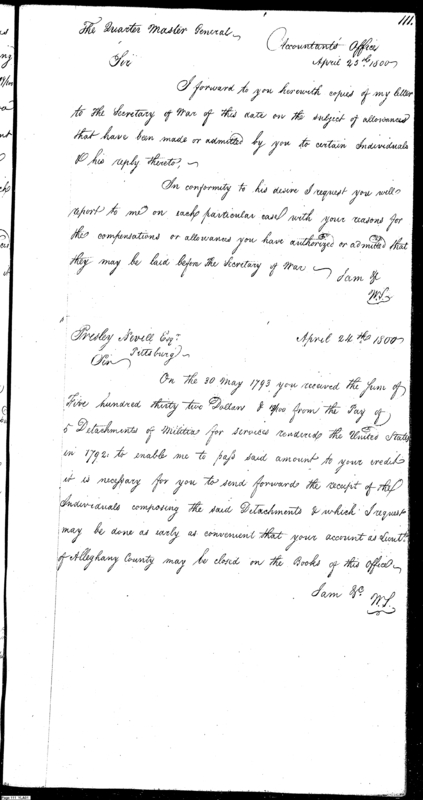 111.
The Quarter Master General
Accountant's Office
April 23rd 1800
Sir
I forward to you herewith copies of my letter
to the Secretary of War of this date on the subject of allowances
that have been made or admitted by you to certain Individuals
& his reply thereto.
In conformity to his desire I request you will
report to me on each particular case with your reasons for
the compensations or allowances you have authorized or admitted that
they may be laid before the Secretary of War
I am &c
W.S.
Presley Nevill Esqr.
April 24th 1800
Pittsburg
Sir
On the 30 May 1793 you received the Sum of
Five hundred thirty two Dollars & /100 from the Pay of
5 Detachments of Militia for services rendered the United States
in 1792, to enable me to pass said amount to your credit
it is necessary for you to send forward the receipt of the
Individuals composing the said Detachments & which I request
may be done as early as convenient that your account as Lieutt.
of Alleghany County may be closed on the Books of this Office
I am &c.
W.S.
Page 111